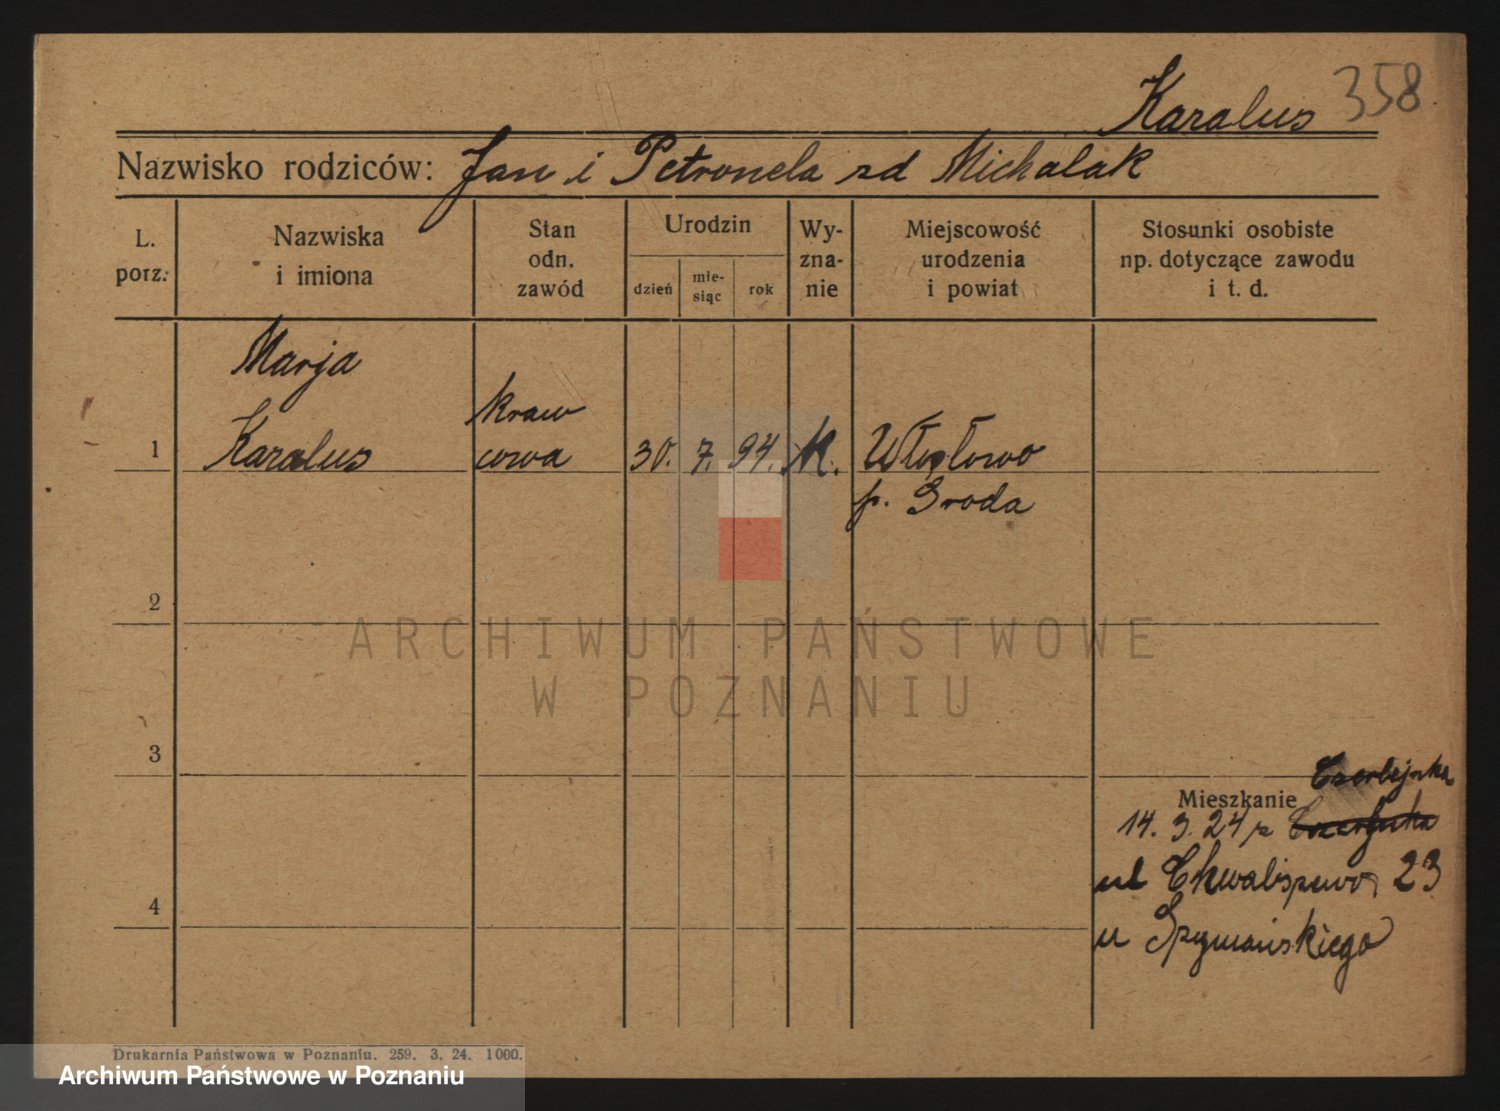 Karalus 358
Nazwisko rodziców: Jan i Petronela zd Michalak
L. porz.
Nazwiska i imiona
Stan odn. zawód
Urodzin
dzień
mie-siąc
rok
Wy-zna-nie
Miejscowość urodzenia i powiat
Stosunki osobiste np. dotyczące zawodu i t. d.
Marja
Karalus
kraw
cowa
1
30. 7. 94.
K.
Włosłowo
p. Środa
2
3
4
Mieszkanie
14. 3. 24 z
ul Chwaliszewo 23
u
ARCHIWUM PAŃSTWOWE
W POZNANIU
Drukarnia Państwowa w Poznaniu. 259. 3. 24. 1000.
Archiwum Państwowe w Poznaniu